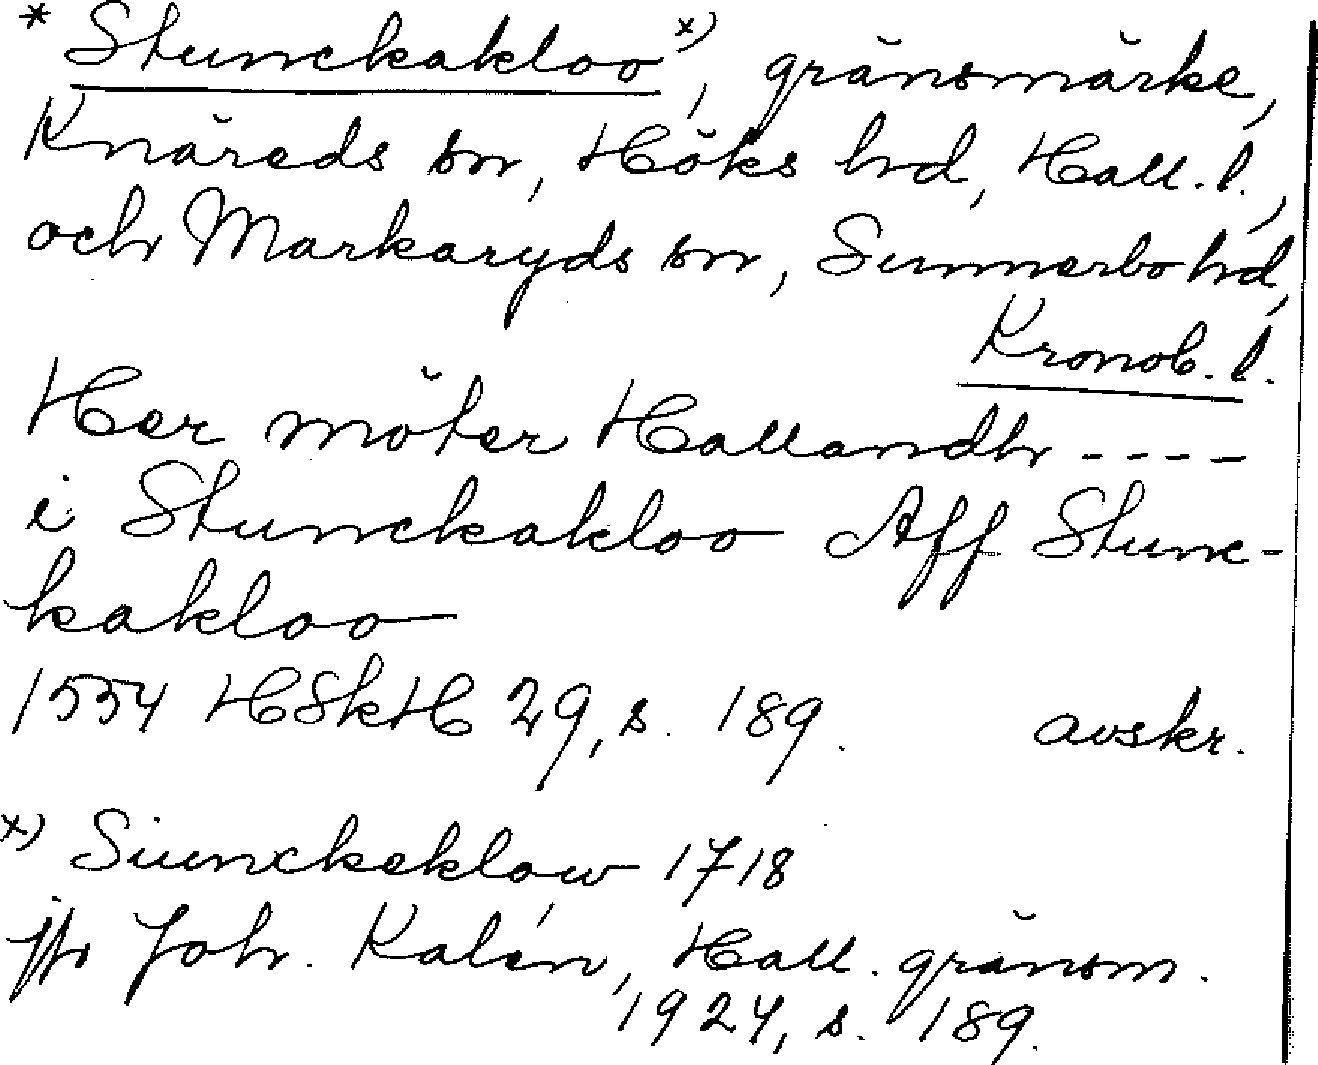 * Stunckakloo x), gränsmärke,
Knäreds sn, Höks hd, Hall. l.,
och Markaryds sn, Sunnerbo hd,
Kronob. l.
Her möter Hallandh ----
i Stunckakloo Aff Stunc-
kakloo
1554 HSkH 29, s. 189. avskr.
x) Siunckeklow 1718
jfr Joh. Kalén, Hall. gränsm.
1924, s. 189.